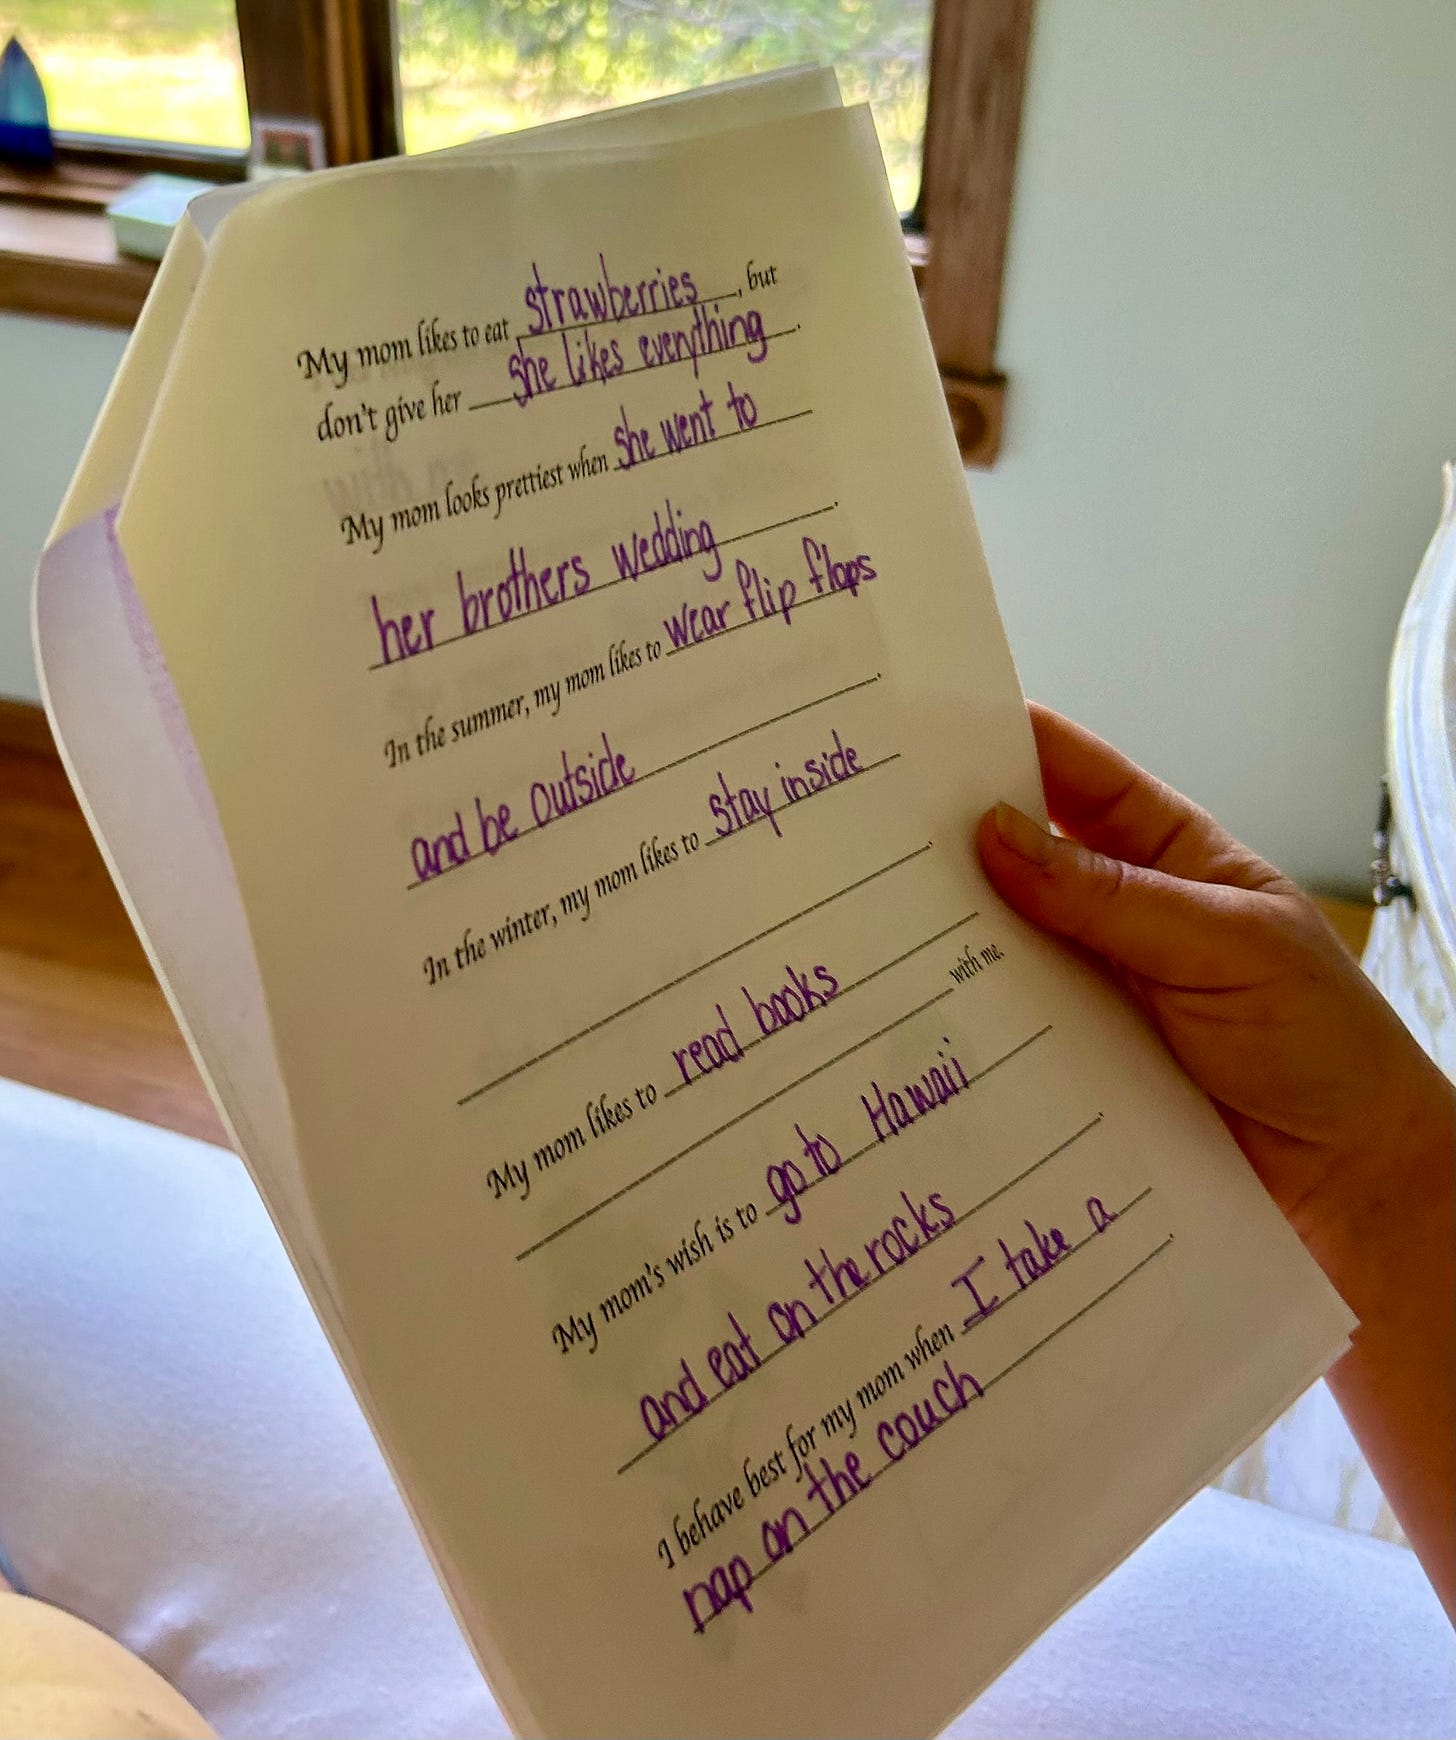 My mom likes to eat strawberries, but
don't give her she likes everything.
My mom looks prettiest when she went to
her brothers wedding.
In the summer, my mom likes to wear flip flops
and be outside.
In the winter, my mom likes to stay inside
.
My mom likes to read books
with me.
My mom's wish is to go to Hawaii
and eat on the rocks.
I behave best for my mom when I take a
nap on the couch.